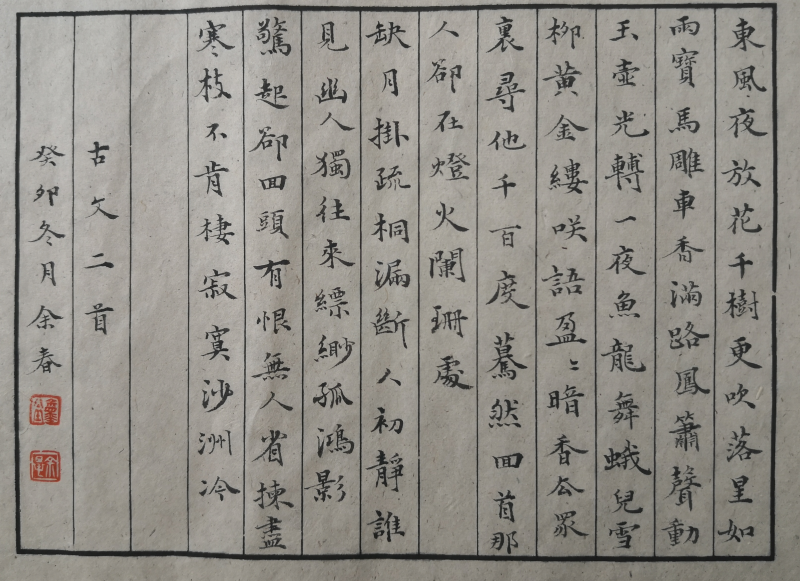 東風夜放花千樹更吹落星如
雨寶馬雕車香滿路鳳簫聲動
玉壺光轉一夜魚龍舞蛾兒雪
柳黃金縷咲語盈〻暗香去眾
裏尋他千百度驀然回首那
人卻在燈火闌珊處
缺月掛疏桐漏斷人初靜誰
見幽人獨往來縹緲孤鴻影
驚起卻回頭有恨無人省揀盡
寒枝不肯棲寂寞沙洲冷
古文二首
癸卯冬月余春